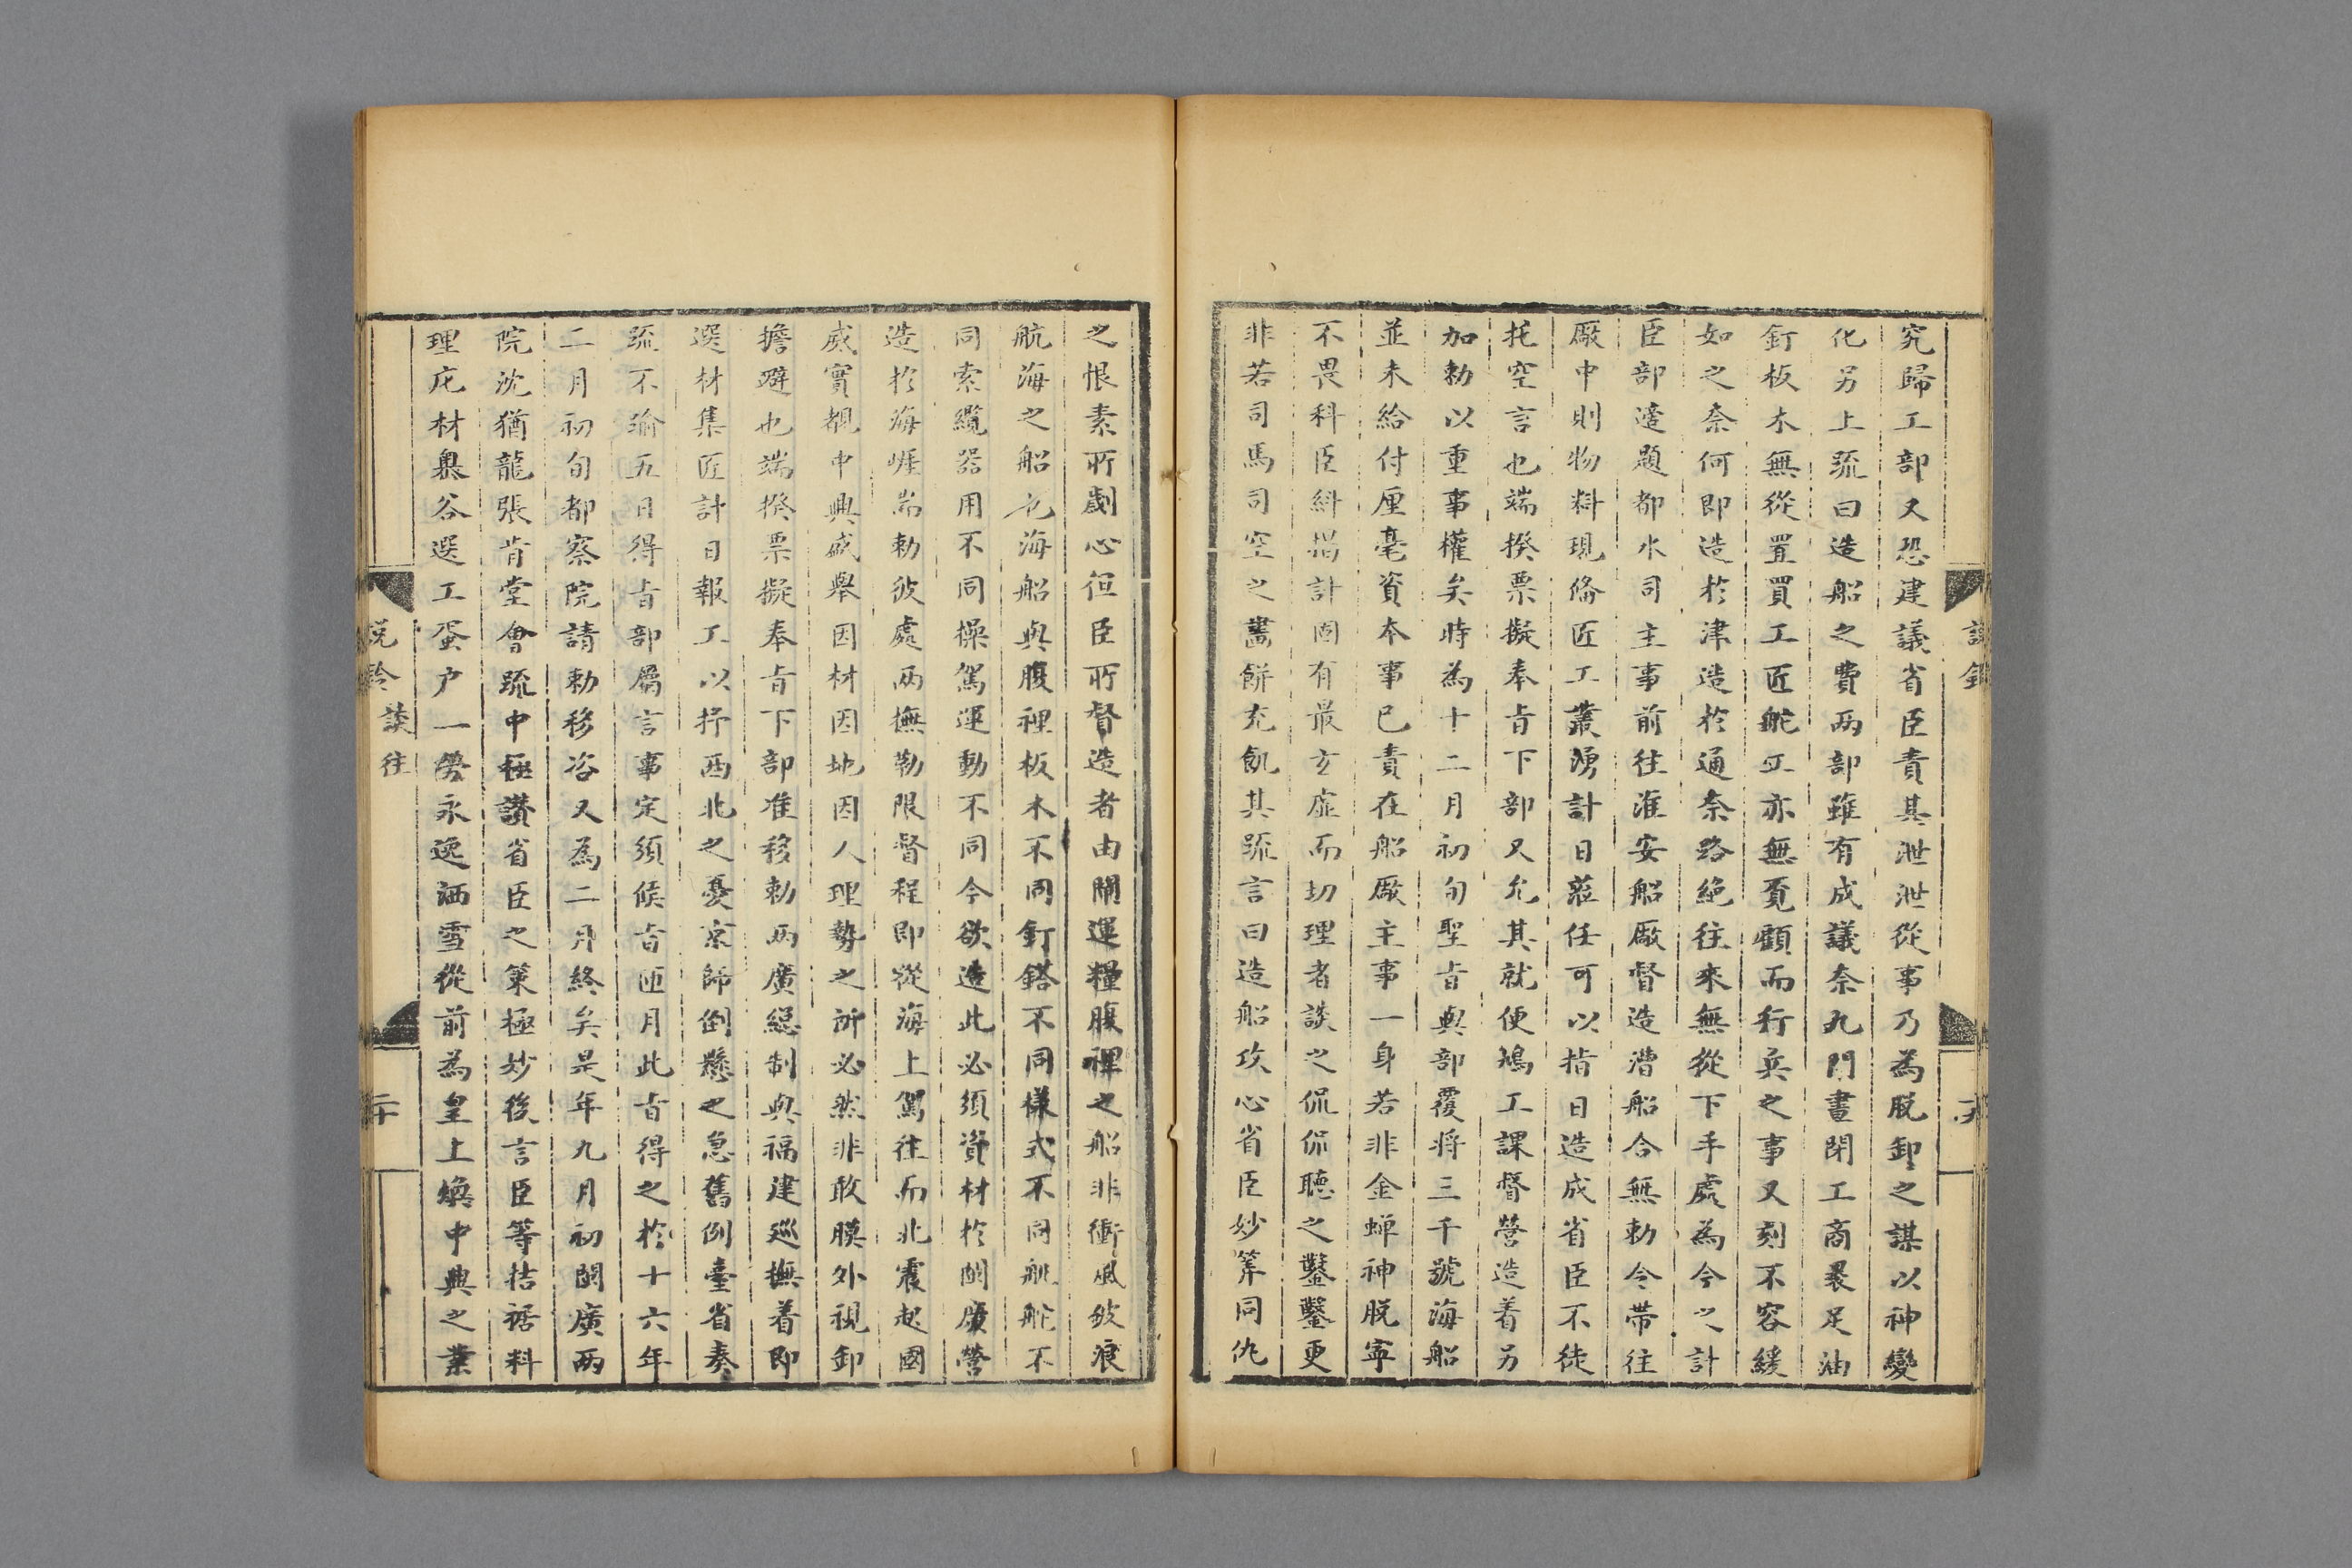 究歸工部又恐建議省臣責其泄泄從事乃為脫卸之謀以神變
化另上疏曰造船之費兩部雖有成議奈九門晝閉工商裹足油
釘板木無從置買工匠舵工亦無覓顧而行兵之事又刻不容緩
如之奈何即造於津造於通奈路絕往來無從下手處為今之計
臣部遵題都水司主事前往淮安船廠督造漕船合無勅令帶往
廠中則物料現俻匠工叢湧計日蒞任可以指日造成省臣不徒
托空言也端揆票擬奉㫖下部又允其就便鳩工課督營造着另
加勅以重事權矣時為十二月初旬聖㫖與部覆將三千號海船
並未給付厘毫資本事已責在船廠主事一身若非金蟬神脫寧
不畏科臣糾摘計固有最玄虛而切理者談之侃侃聽之鑿鑿更
非若司馬司空之畵餅充飢其疏言曰造船攻心省臣妙筭同仇
之恨素所劌心但臣所督造者由閘運糧腹裡之船非衝風破浪
航海之船也海船與腹裡板木不同釘鐥不同樣式不同舤舵不
同索纜器用不同操駕運動不同今欲造此必須資材於閩廣營
造於海崕耑勅彼處兩撫勒限督程即從海上駕往而北震起國
威實覩中興盛舉因材因地因人理勢之所必然非敢膜外視卸
擔避也端揆票擬奉㫖下部准移勅兩廣緫制與福建廵撫着即
選材集匠計日報工以抒西北之憂京師倒懸之急舊例臺省奏
疏不踰五日得㫖部屬言事定須候㫖匝月此㫖得之於十六年
二月初旬都察院請勅移咨又為二月終矣是年九月初閩廣兩
院沈猶龍張肯堂會疏中極讚省臣之策極妙後言臣等拮据料
理庀材㮣谷選工蛋户一勞永逸洒雪從前為皇上煥中興之業
説鈴 談往
二十